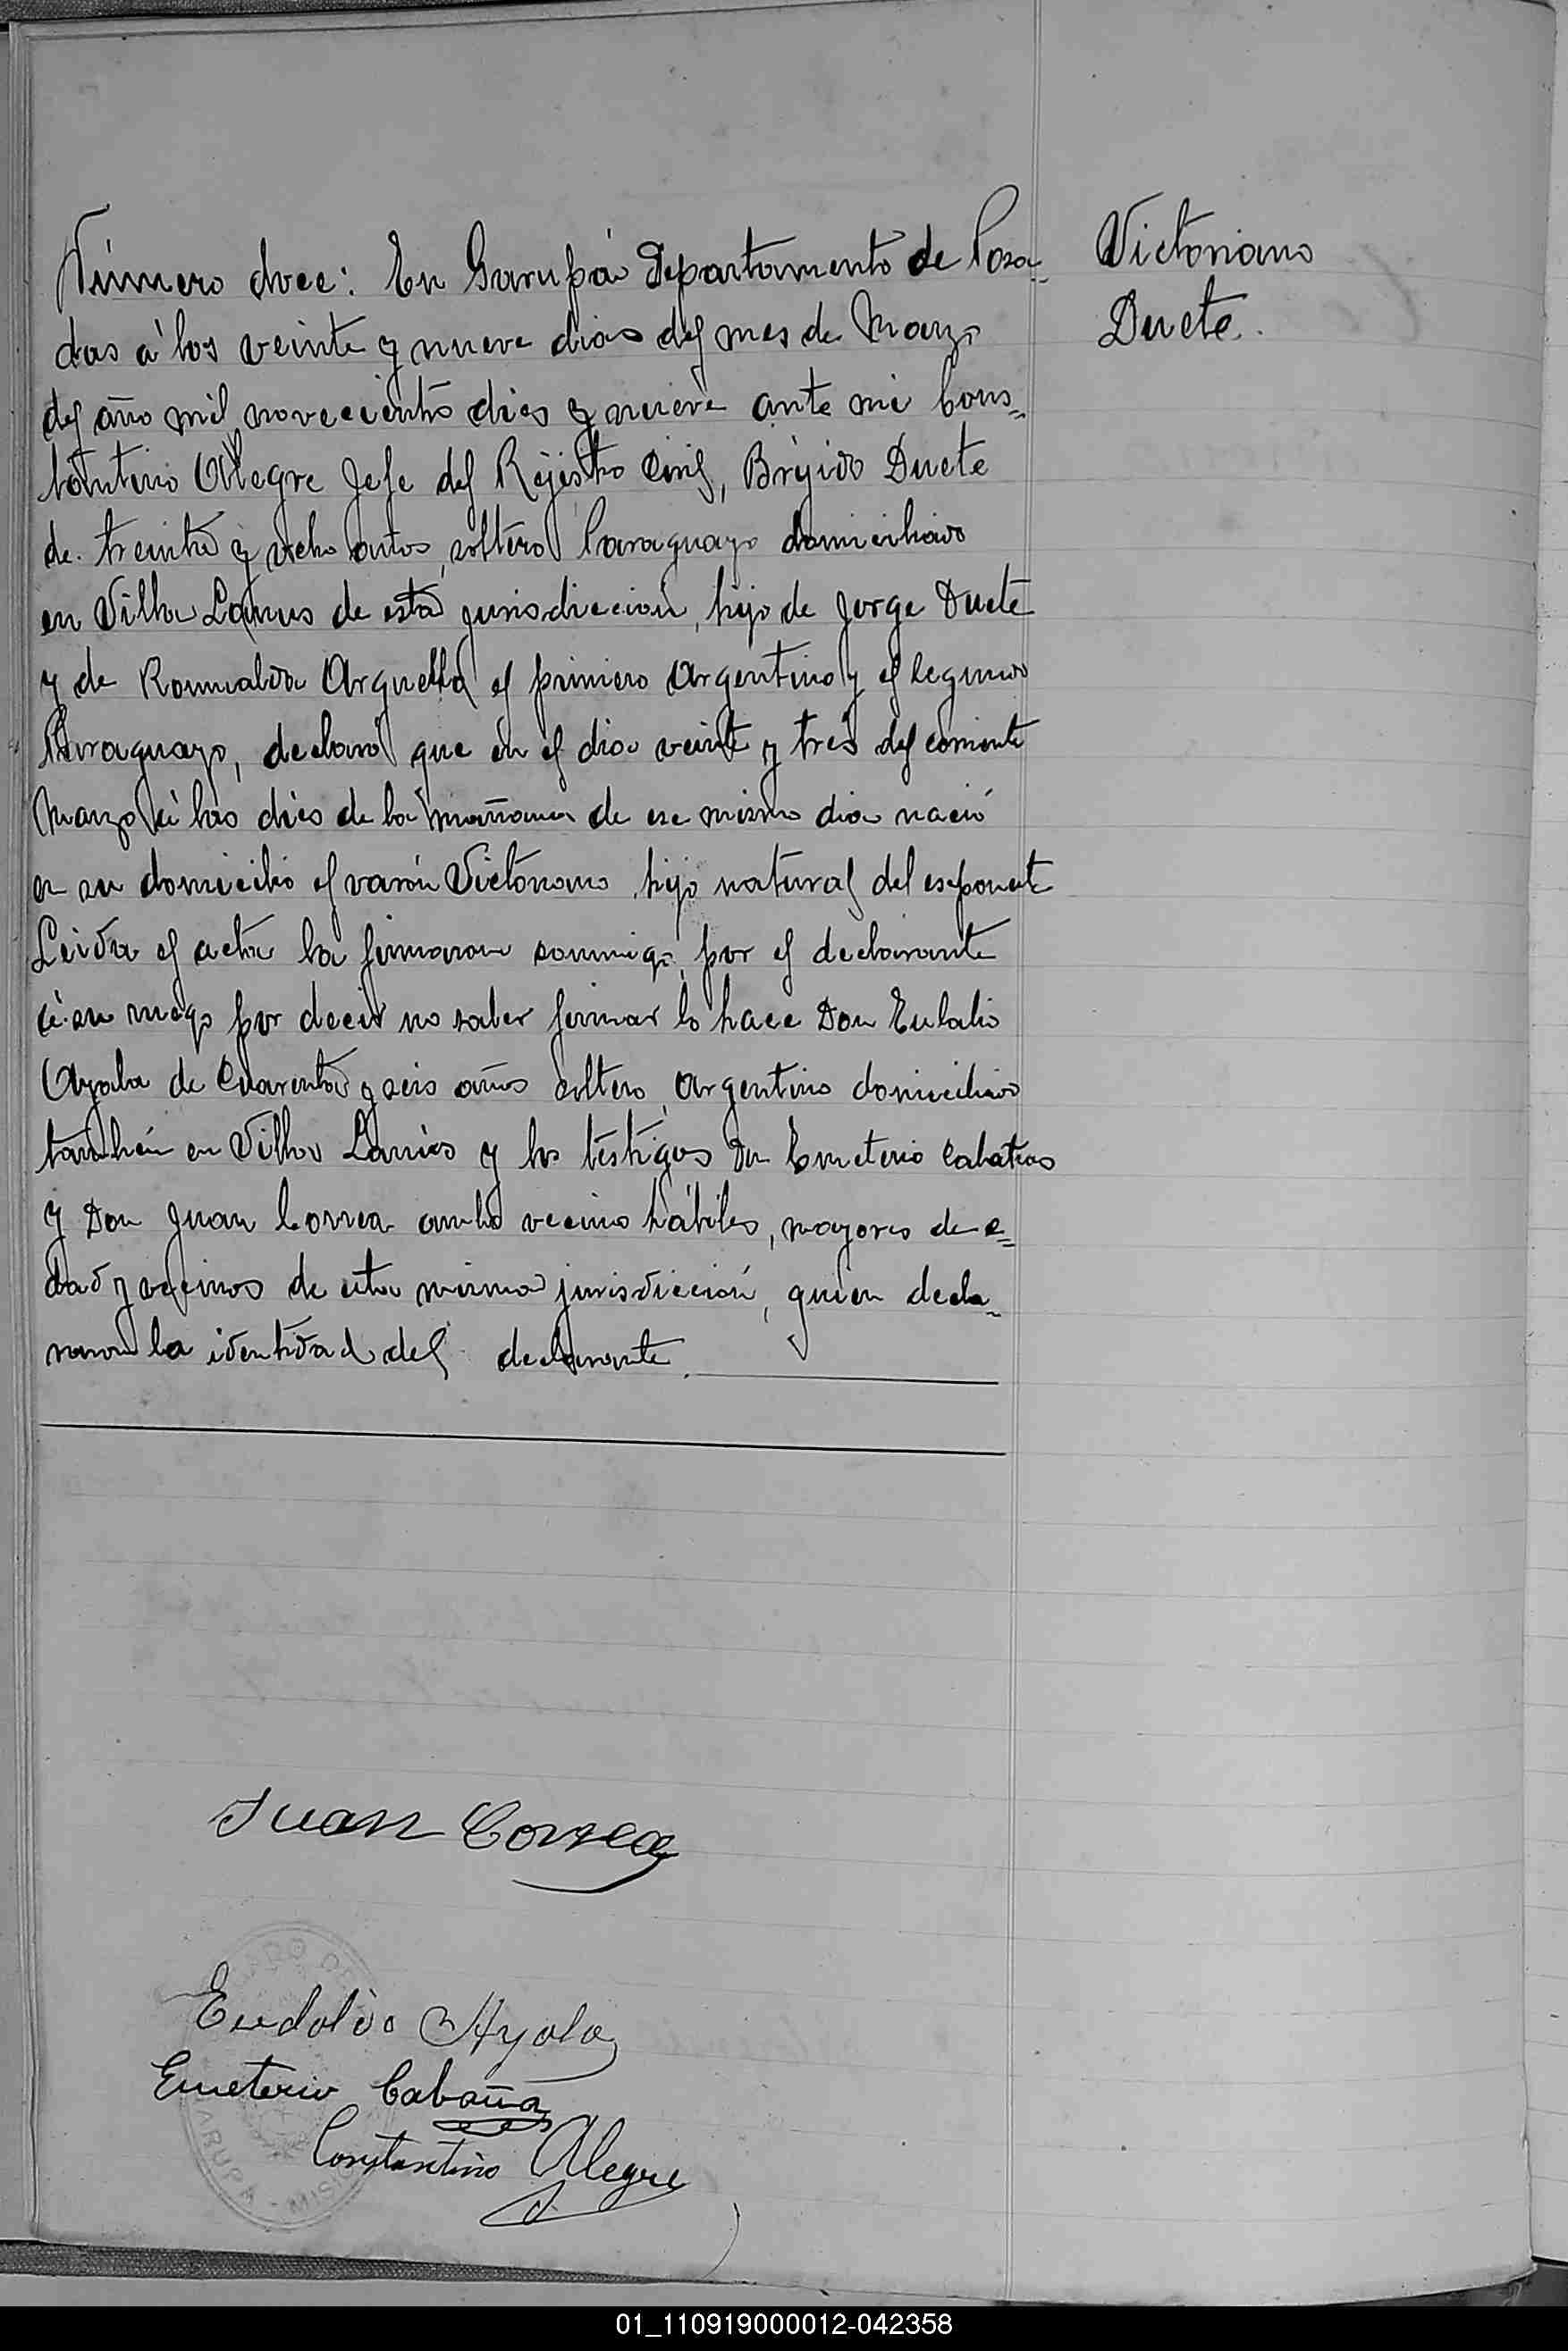 Número doce: En Garupá Departamento de Posa=
das á los veinte y nueve dias del mes de Marzo
del año mil novecientos dies y nueve ante mi Cons=
tantino Alegre Jefe del Rejistro Civil, Bríjido Duete
de treinta y ocho años, soltero Paraguayo domiciliado
en Villa Lanus de esta jurisdiccion, hijo de Jorge Duete
y de Romualda Arguella el primero Argentino y el segundo
Paraguayo, declaró que en el dia veinte y tres del corriente
Marzo á las dies de la mañana de ese mismo dia nació
en su domicilio el varón Victoriano hijo natural del esponente
Leida el acta la firmaron conmigo, por el declarante
á su ruego por decir no saber firmar lo hace Don Eulalio
Ayala de Cuarenta y seis años soltero, Argentino domiciliado
también en Villa Lanús y los téstigos Don Emeterio Cabañas
y Don Juan Correa ambo vecino hábiles, mayores de e=
dad y vecinos de esta misma jurisdicción, quien decla=
raron la identidad del declarante.
Victoriano
Duete.
Juan Correa
Eudolio Ayala
Emeterio Cabaña
Constantino Alegre
GARUPÁ - MISIO
01_110919000012-042358